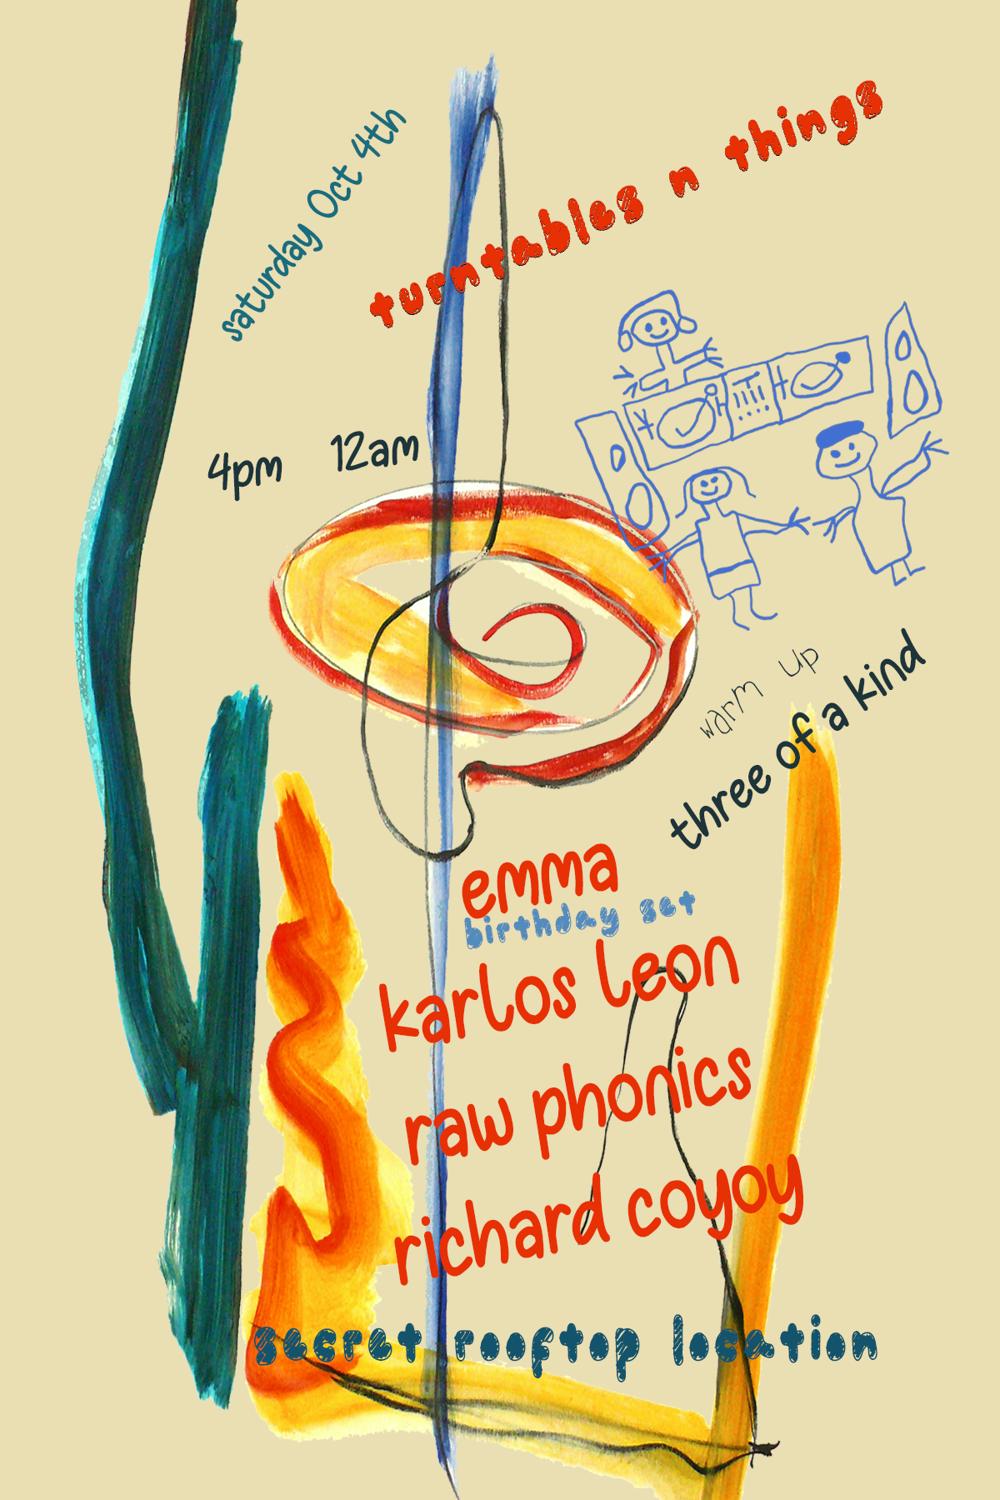 saturday Oct 4th
turntables n things
4pm 12am
warm up
three of a kind
emma
birthday set
karlos leon
raw phonics
richard coyoy
secret rooftop location